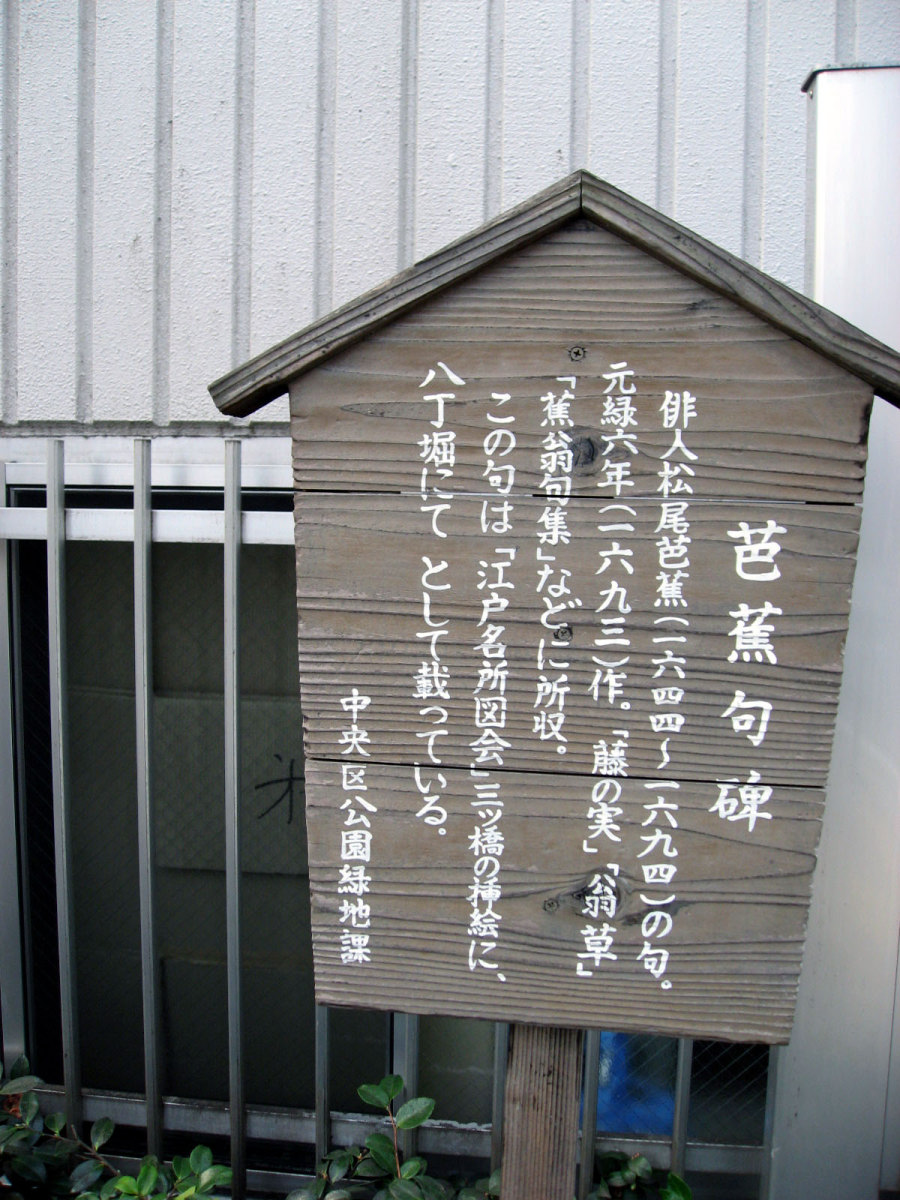 芭蕉句碑
俳人松尾芭蕉(一六四四〜一六九四)の句。
元緑六年(一六九三)作。「藤の実」「翁草」
「蕉翁句集」などに所収。
この句は「江戸名所図会」三ッ橋の挿絵に、
八丁堀にて として載っている。
中央区公園緑地課